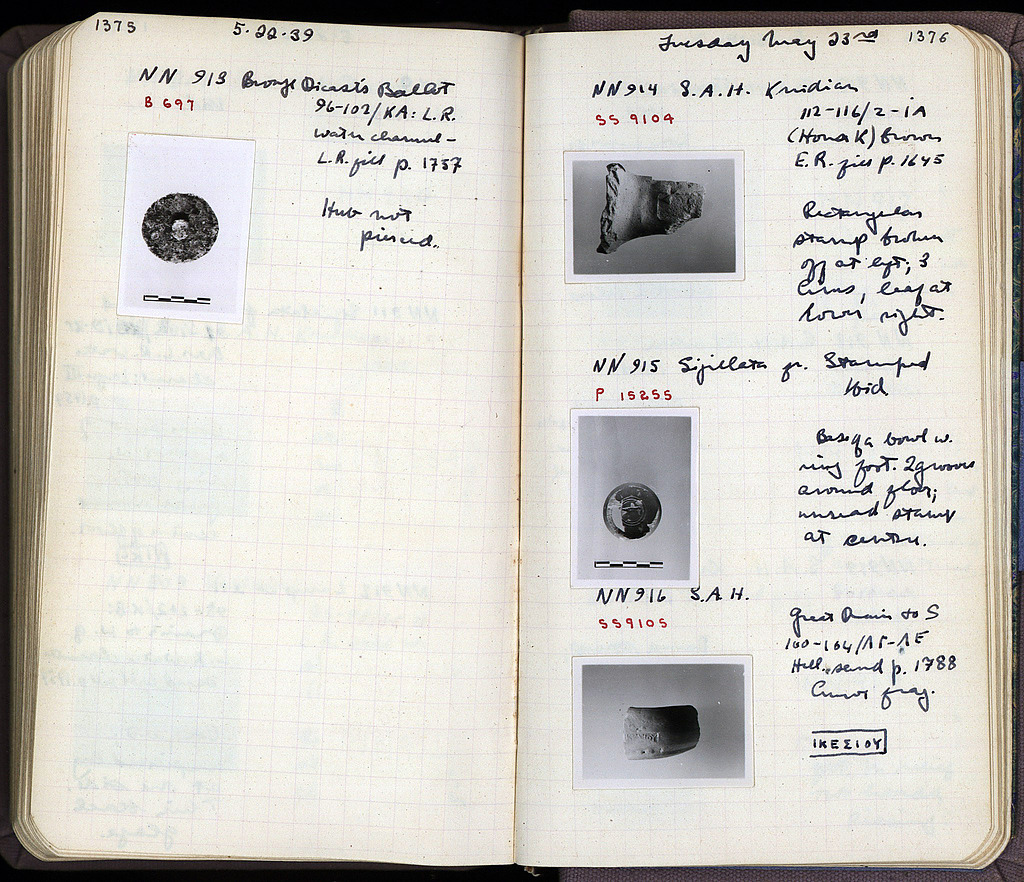 1375
5-22-39
NN 913 Bronze Dicast's Ballot
B 697
96-102/KA: L.R.
water channel-
L.R. fill p. 1757
Hub not
pierced.
Tuesday May 23rd
1376
NN914 S.A.H. Knidian
SS 9104
112-116/2-1A
E.R. fill p. 1645
Rectangular
stamp broken
off at left; 3
lines, leaf at
lower right.
NN 915 Sigillata fr. Stamped
P 15255
Base of a bowl w.
ring foot. 2 grooves
around floor;
unread stamp
at centre.
NN916 S.A.H.
SS9105
Great Drain to S
160-164/ΛΓ-ΛΕ
Hell. sand p. 1788
frag.
ΙΚΕΣΙΟΥ